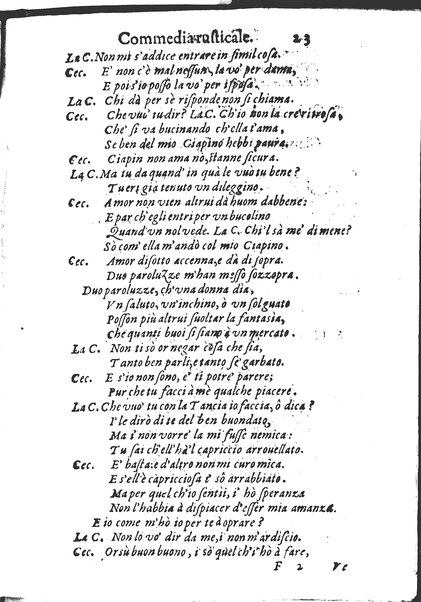 Commedia rusticale. 23
La C. Non mi s'addice entrare in simil cosa.
Cec. E' non c'è mal nessun, la vo' per dama,
E poi s'io posso la vo' per isposa.
La C. Chi dà per sè rispond e non si chiama.
Cec. Che vuo' tu dir? La C. Ch'io non la cre ritrosa,
Che' si va bucinando ch'ella t'ama,
Se ben del mio Ciapino hebbi paura.
Cec. Ciapin non ama nò, stanne sicura.
La C. Ma tu da quand' in quà le vuò tu bene?
Tu eri già tenuto vn dileggino.
Cec. Amor non vien altrui dà huom dabbene:
E par ch'egli entri per vn bucolino
Quand'vn nol vede. La C. Chi'l sà me' di mene?
Sò com' ella m'andò col mio Ciapino.
Cec. Amor di sotto accenna, e dà di sopra.
Duo paroluzze m'han messo sozzopra.
Duo paroluzze, ch'vna donna dia,
Vn saluto, vn'inchino, ò vn solguato
Posson più altrui suoltar la fantasia,
Che quanti buoi si siano à vn mercato.
La C. Non ti sò or negar cosa che sia,
Tanto ben parli, e tanto se' garbato.
Cec. E s'io non sono, e' ti potre' parere;
Pur che tu facci à me qualche piacere.
La C. Che vuo' tu con la Tancia io faccia, ò dica?
I' le dirò di te del ben buondato,
Ma i' non vorre' la mi fusse nemica:
Tu sai ch'ell'hà'l capriccio arrouellato.
Cec. E' basta: e d'altro non mi curo mica.
E s'ell'è capricciosa i' sò arrabbiato.
Ma per quel ch'io sentii, i' hò speranza
Non l'habbia à dispiacer d'esser mia amanza.
E io come m'hò io per te à oprare?
La C. Non lo vo' dir da me, i non m'ardisco.
Cec. Orsù buon buono, i sò quel ch'i'hò à fare,
F 2 Ve